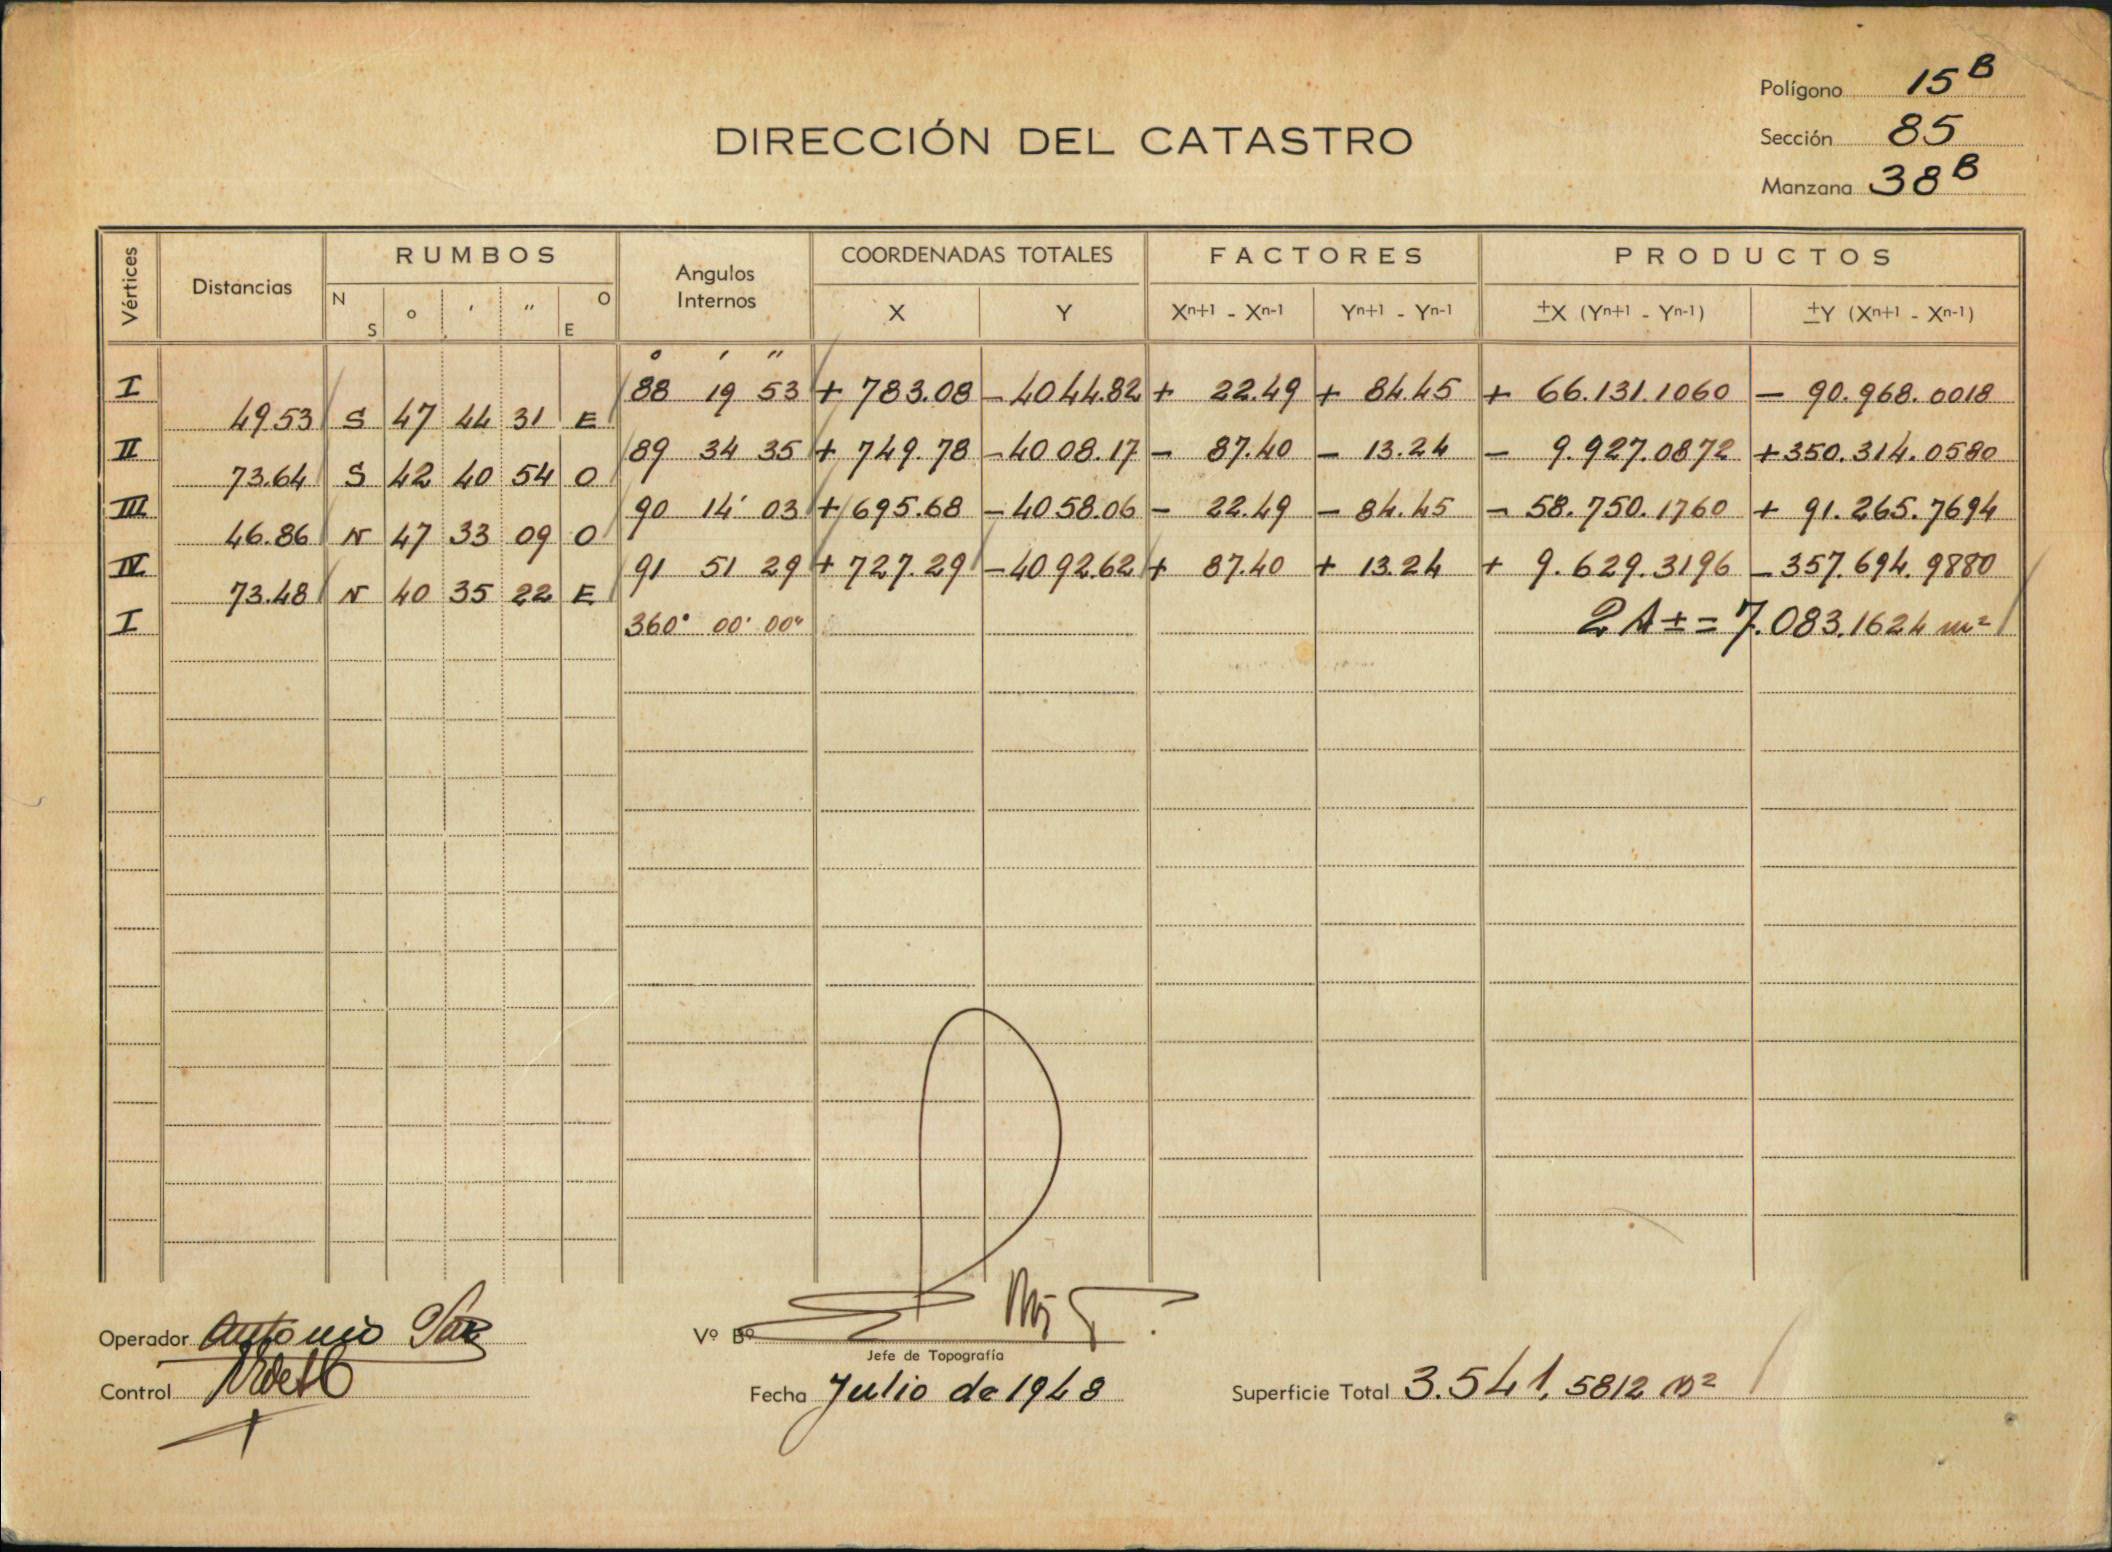 Polígono 15 B
DIRECCIÓN DEL CATASTRO
Sección 85
Manzana 38 B
Vértices Distancias RUMBOS Angulos Internos COORDENADAS TOTALES FACTORES PRODUCTOS
N S ° ' " O E X Y Xn+1 - Xn-1 Yn+1 - Yn-1 ±X (Yn+1 - Yn-1) ±Y (Xn+1 - Xn-1)
° ' "
I 88 19 53 + 783.08 - 4044.82 + 22.49 + 84.45 + 66.131.1060 - 90.968.0018
49.53 S 47 44 31 E
II 89 34 35 + 749.78 - 4008.17 - 87.40 - 13.24 - 9.927.0872 + 350.314.0580
73.64 S 42 40 54 O
III 90 14' 03 + 695.68 - 4058.06 - 22.49 - 84.45 - 58.750.1760 + 91.265.7694
46.86 N 47 33 09 O
IV 91 51 29 + 727.29 - 4092.62 + 87.40 + 13.24 + 9.629.3196 - 357.694.9880
73.48 N 40 35 22 E
I 360° 00' 00" 2A ± = 7.083.1624 m²
Operador Antonio
Vº Bº
Jefe de Topografía
Control
Fecha Julio de 1948
Superficie Total 3.541,5812 m²